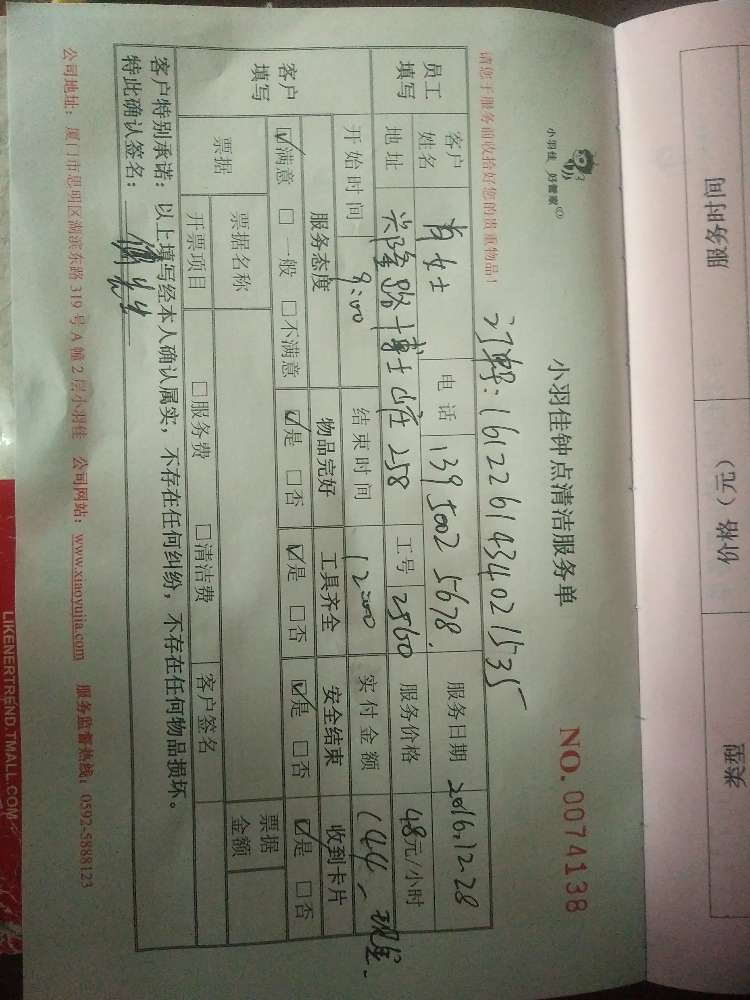 小羽佳 好管家
小羽佳钟点清洁服务单
NO. 0074138
请您于服务前收拾好您的贵重物品!
订单号: 1612261434021535
员工填写
客户姓名 肖女士 电话 139 5002 5678. 服务日期 2016.12.28
地址 兴隆路博士山庄 258 工号 2860 服务价格 48元/小时
客户填写
开始时间 9:00 结束时间 12:00 实付金额 144- 现金.
服务态度 物品完好 工具齐全 安全结束 收到卡片
☑满意 □一般 □不满意 ☑是 □否 ☑是 □否 ☑是 □否 ☑是 □否
票据 票据名称 票据金额
开票项目 □服务费 □清洁费 客户签名
客户特别承诺:以上填写经本人确认属实,不存在任何纠纷,不存在任何物品损坏。
特此确认签名:
公司地址:厦门市思明区湖滨东路 319 号 A 幢 2 层小羽佳 公司网站:www.xiaoyujia.com 服务监督热线:0592-5888123
服务时间 价格(元) 类型
LIKENERTREND.TMALL.COM